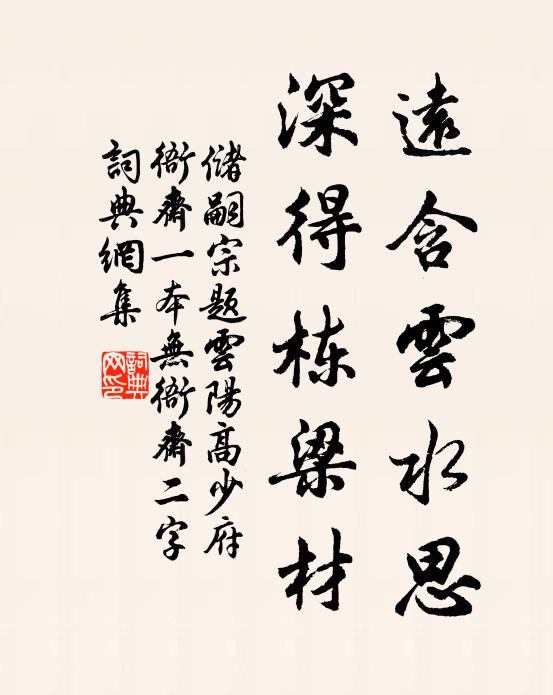 遠含雲水思
深得棟梁材
儲嗣宗題雲陽高少府
衙齋一本無衙齋二字
詞典網集
詞典網印